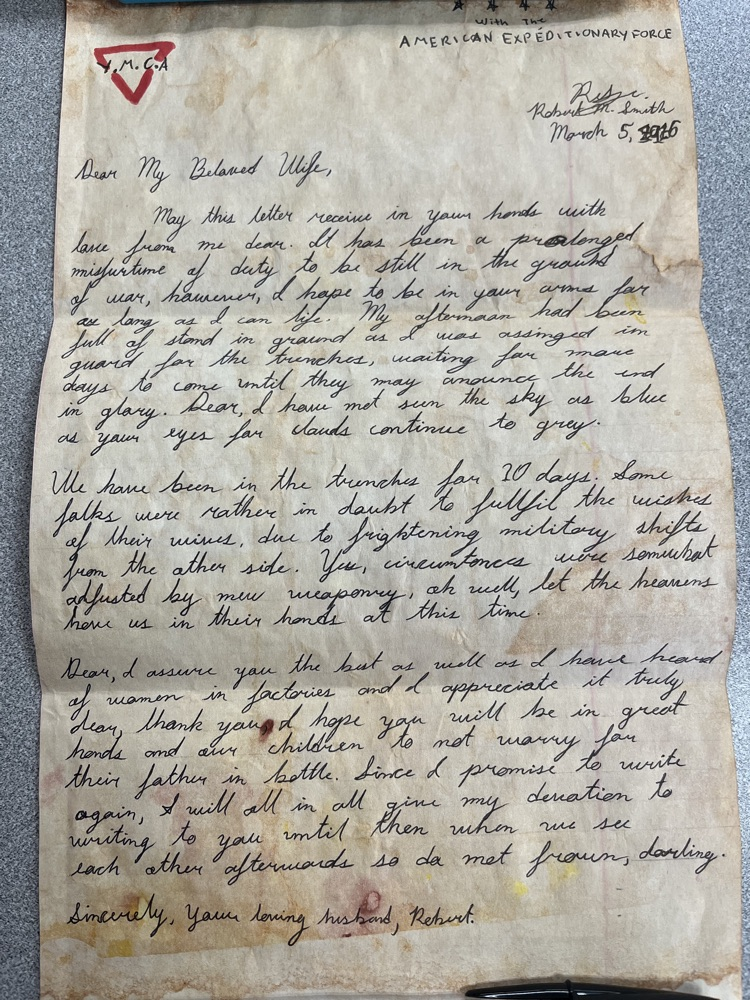 With The
AMERICAN EXPEDITIONARY FORCE
Y.M.C.A
Robert M. Smith
March 5,
Dear My Beloved Wife,
May this letter receive in your hands with
love from me dear. It has been a prolonged
misfurtune of duty to be still in the grounds
of war, however, I hope to be in your arms for
as long as I can life. My afternoon had been
full of stand in ground as I was assinged in
guard for the trenches, waiting for more
days to come until they may anounce the end
in glory. Dear, I have not seen the sky as blue
as your eyes for clouds continue to grey.
We have been in the trenches for 10 days. Some
folks were rather in doubt to fullfil the wishes
of their wives, due to frightening military shifts
from the other side. Yes, circumtances were somewhat
adjusted by new weaponry, oh well, let the heavens
have us in their hands at this time.
Dear, I assure you the best as well as I have heard
of women in factories and I appreciate it truly
dear, thank you, I hope you will be in great
hands and our children to not worry for
their father in battle. Since I promise to write
again, I will all in all give my devotion to
writing to you until then when we see
each other afterwards so do not frown, darling.
Sincerely, Your loving husband, Robert.